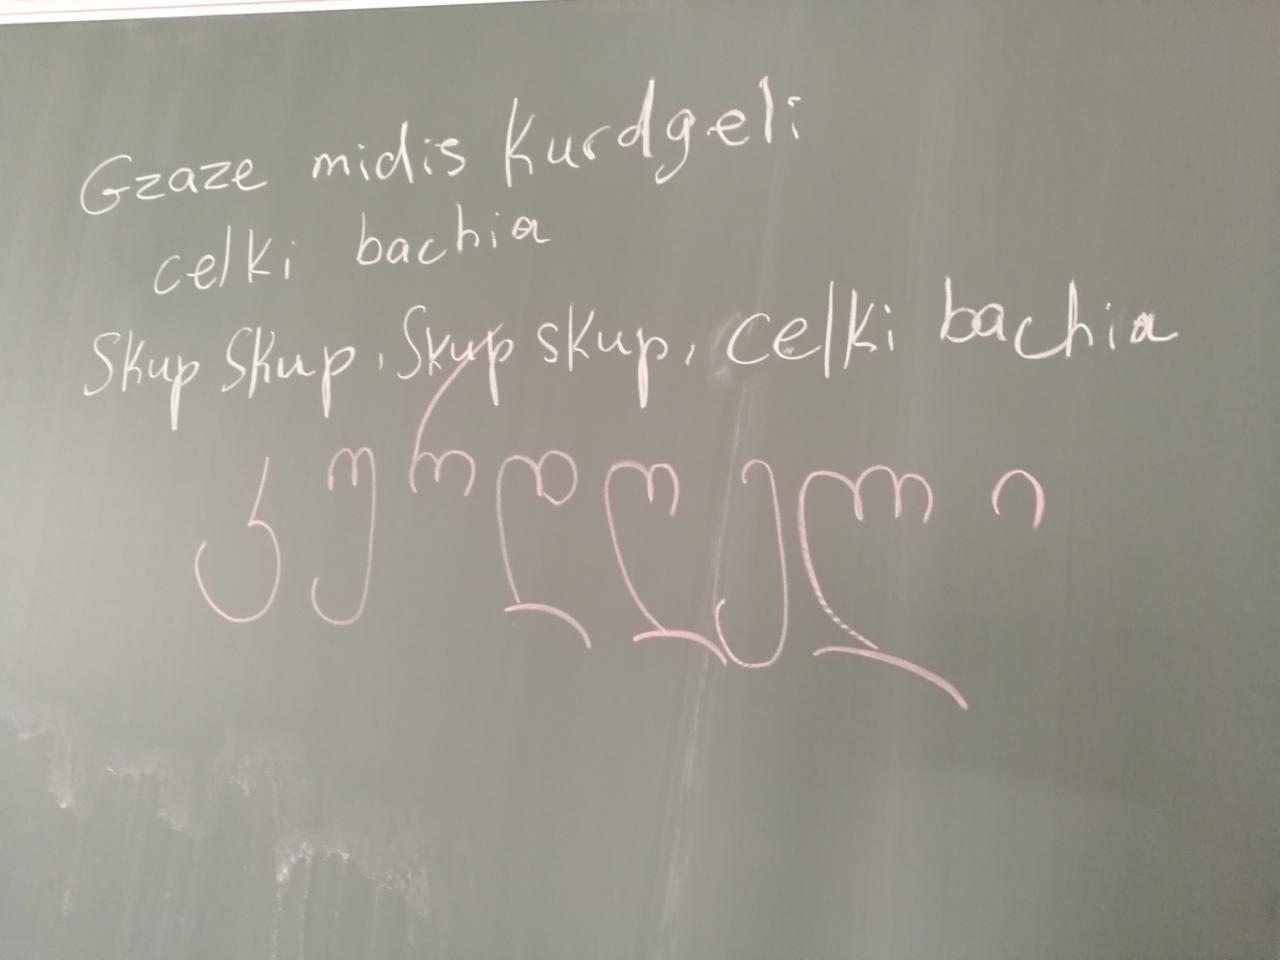 Gzaze midis Kurdgeli
celki bachia
Skup Skup, Skup skup, celki bachia
კურდღელი